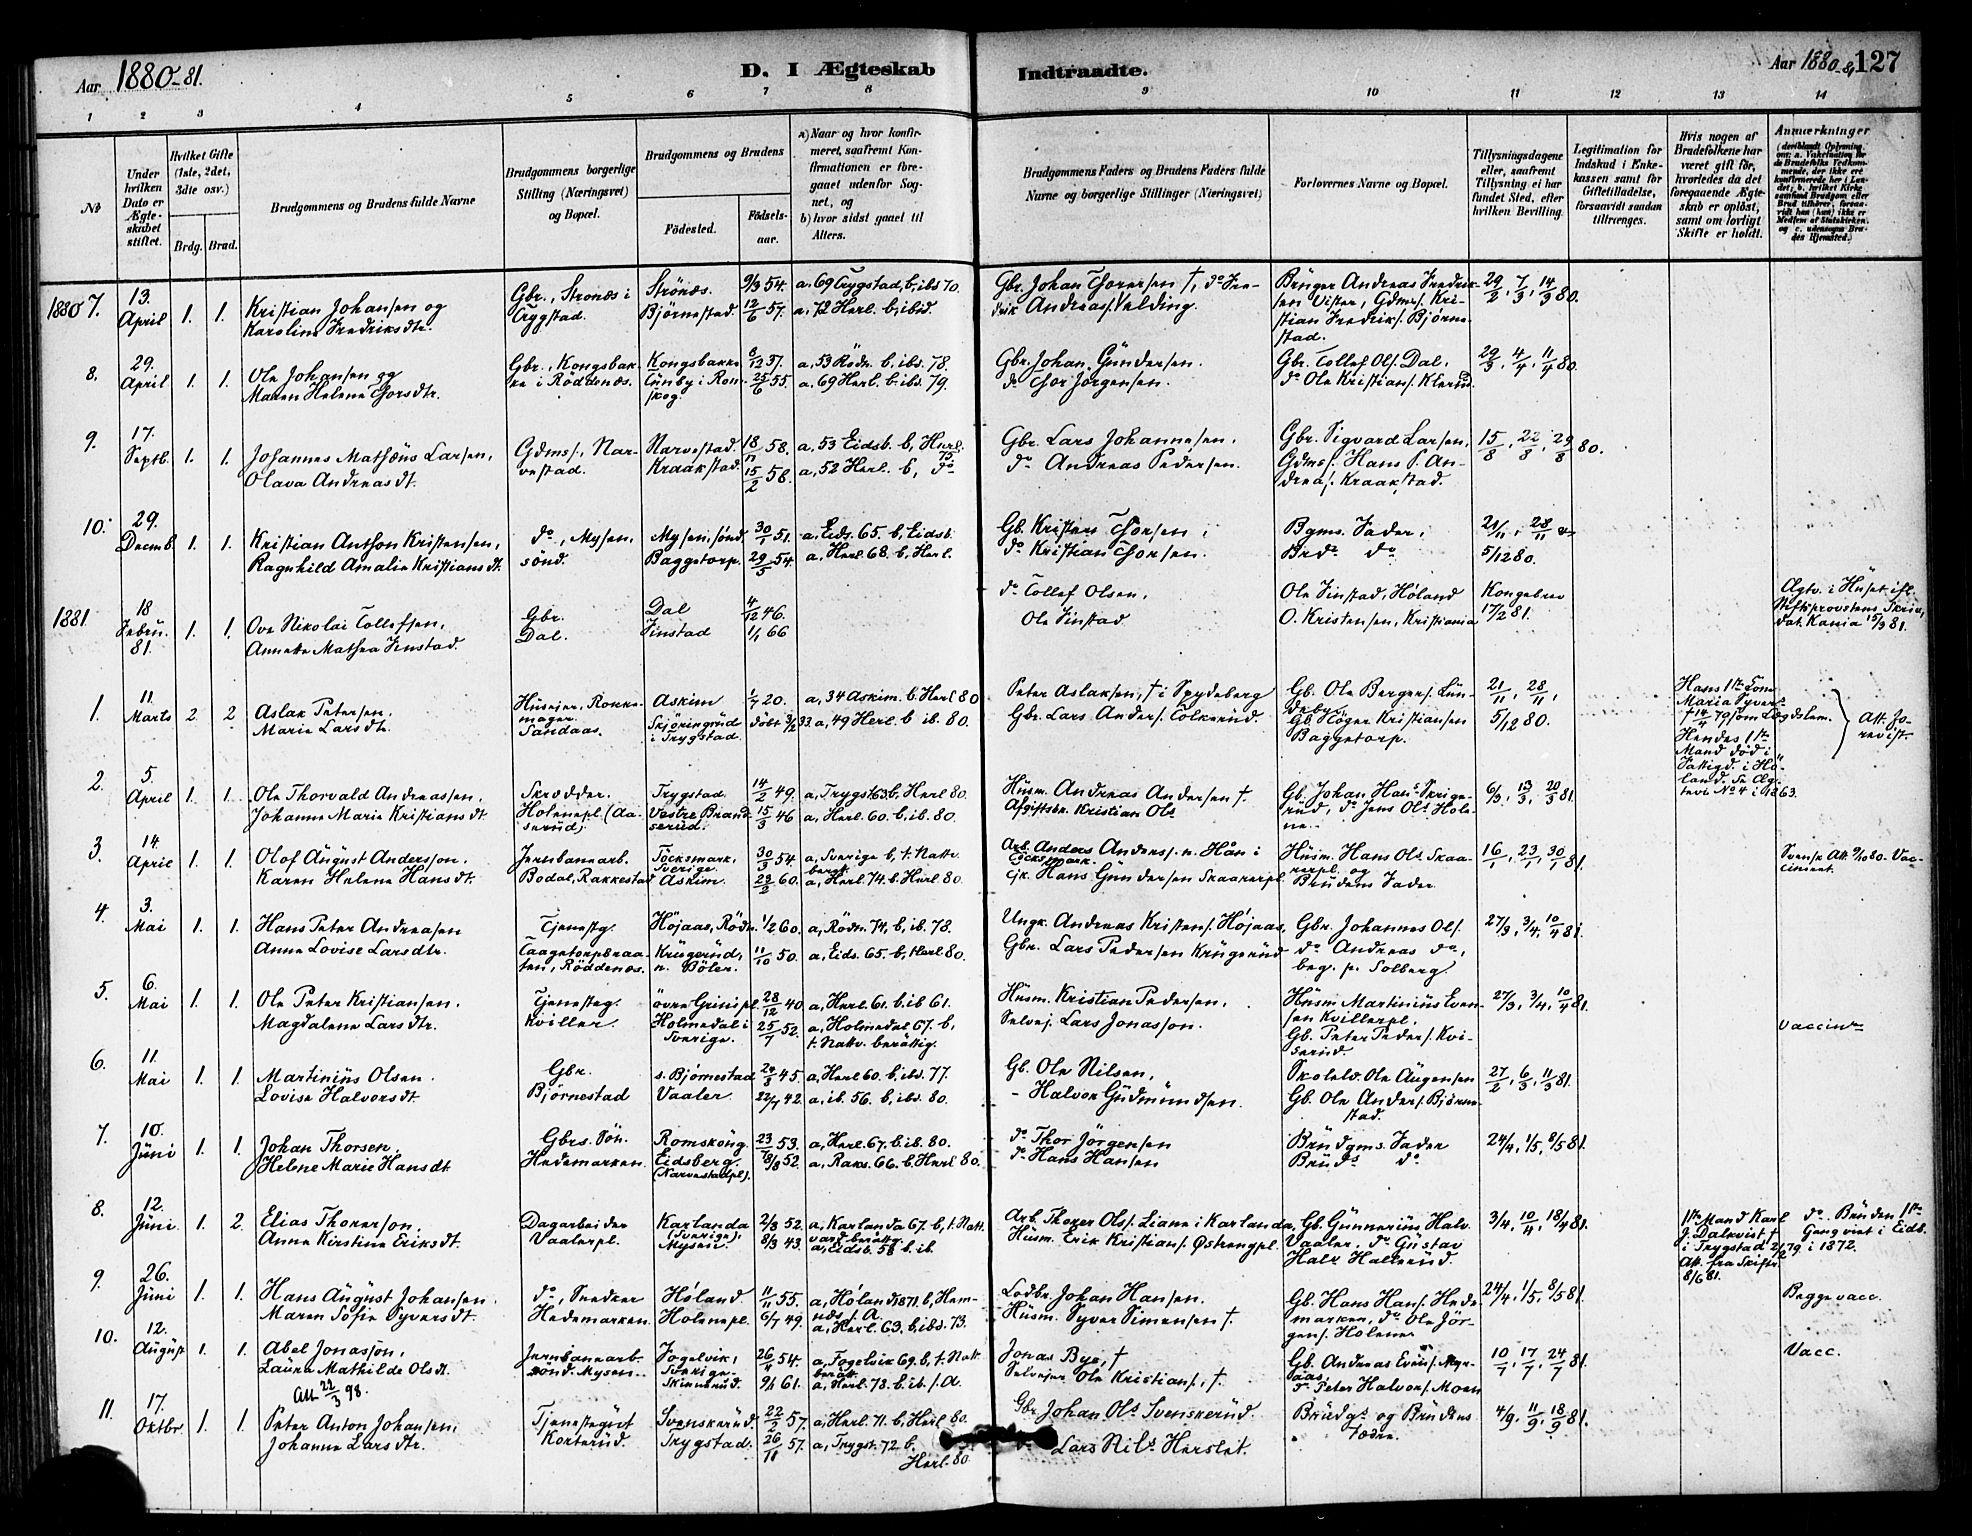 Aar 1880-81.
D. I Ægteskab
Indtraadte.
Aar 1880-81
127
1 2 3 4 5 6 7 8 9 10 11 12 13 14
No
Under hvilken Dato er Ægteskabet stiftet.
Hvilket Gifte (1ste, 2det, 3die osv.)
Brdg. Brud.
Brudgommens og Brudens fulde Navne
Brudgommens borgerlige Stilling (Næringsvei) og Bopæl.
Brudgommens og Brudens
Födested.
Födselsaar.
a) Naar og hvor konfirmeret, saafremt Konfirmationen er foregaaet udenfor Sognet, og
b) hvor sidst gaaet til Alters.
Brudgommens Faders og Brudens Faders fulde Navne og borgerlige Stillinger (Næringsvei)
Forlovernes Navne og Bopæl.
Tillysningsdagene eller, saafremt Tillysning ei har fundet Sted, efter hvilken Bevilling.
Legitimation for Indskud i Enkekassen samt for Giftetilladelse, forsaavidt saadan tiltrænges.
Hvis nogen af Brudefolkene har været gift før, hvorledes da det foregaaende Ægteskab er opløst, samt om lovligt Skifte er holdt.
Anmærkninger
1880 7. 13. April 1. 1. Kristian Johansen og
Karoline Fredriksdtr.
Gbr., Strönæs i Trygstad.
Strönæs. 9/3 54. a, 69 Trygstad, b, ibd 70.
Bjørnestad. 12/6 57. a, 72 Herl. b, ibid.
Gbr. Johan Thoresen †, do Fredrik Andreas. Velding.
Brüger Andreas Fredriksen Vister, Gdms. Kristian Fredriks. Bjørnestad.
29/2, 7/3, 14/3 80.
8. 29. April 1. 1. Ole Johansen og
Maren Helene Thorsdtr.
Gbr., Kongsbakke i Röddenæs.
Kongsbakke 6/12 37. a, 53 Rödn. b, ibd. 78.
Tünby i Romskog. 25/6 55. a, 69 Herl. b, ibd. 79.
Gbr. Johan Gündersen.
do Thor Jörgensen.
Gbr. Tollef Ols. Dal,
do Ole Kristians. Klerud.
29/3, 4/4, 11/4 80.
9. 17. Septb. 1. 1. Johannes Mathæus Larsen,
Olava Andreasdt.
Gdms., Narvestad.
Narvestad. 58. a, 53 Eidsb. b, Herl. 75.
Kraakstad. 15/2 58. a, 52 Herl. b, do
Gbr. Lars Johannesen.
do Andreas Pedersen.
Gbr. Sigvard Larsen,
Gdms. Hans P. Andreas. Kraakstad.
15/8, 22/8, 29/8 80.
10. 29. Decemb. 1. 1. Kristian Anthon Kristensen,
Ragnhild Amalie Kristiansdt.
do, Mysen, sönd.
Mysen, sönd. 30/1 51. a, Eids. 65. b, Eidsb.
Baggetorp. 29/5 54. a, Herl. 68. b, Herl.
Gb. Kristen Thorsen,
do Kristian Thorsen.
Bgms. Fader,
Brds do
21/11, 28/11 &
5/12 80.
1881 18 Febru. 81. 1. 1. Ove Nikolai Tollefsen,
Annette Mathea Finstad.
Gbr. Dal.
Dal 4/12 46.
Finstad 1/1 66
do Tollef Olsen,
Ole Finstad
Ole Finstad, Höland
O. Kristensen, Kristiania
Kongebrev 17/2 81.
Ægtv. i Huset ifl. Stiftsprovstens Skriv. dat. Kania 15/3 81.
1. 11 Marts 2. 2 Aslak Petersen.
Marie Larsdtr.
Huseier, Rokkemager. Sandaas.
Askim 1/7 20. a, 34 Askim. b. Herl 80
Skjöringrud i Trygstad. döbt 3/2 33. a, 49 Herl. b ib. 80.
Peter Aslaksen, † i Spydeberg
Gbr. Lars Anders. Tolkerud.
Gb. Ole Bergers. Lündeby,
Gb. Höger Kristiansen Baggetorp.
21/11, 28/11,
5/12 80.
Hans 1ste Kone Maria Syvers. † 14/4 79 som Lægdslem.
Hendes 1ste Mand död i Fattigd. i Höland. Se Ægtevi No 4 i 1863.
Att. forevist.
2. 5. April 1. 1. Ole Thorvald Andreassen.
Johanne Marie Kristiansdt.
Skrædder. Holenepl. (Aaserud)
Trygstad 14/2 49. a, Trygst 63 b, Herl 80.
Vestre Brandserud. 15/3 46 a, Herl. 60. b, ib. 80.
Husm. Andreas Andersen †.
Afgiftsbr. Kristian Ols.
Gb. Johan Hans. Skrigerud, do Jens Ols. Holene.
6/3, 13/3, 20/3 81.
3. 14. April 1. 1. Olof August Andersson.
Karen Helene Hansdt.
Jernbanearb. Bodal, Rakkestad
Töcksmark, Sverige. 30/3 54. a, Sverige b, t. Nattv. berätt.
Askim. 29/2 60. a, Herl. 74. b. Herl 80.
Arb. Anders Anderss. n. Hån i Töcksmark.
Hans Gündersen Skaarerpl.
Husm. Hans Ols. Skaarerpl. og
Brudens Fader
16/1, 23/1, 30/1 81.
Svensk Att. 9/10 80. Vaccineret.
4. 3. Mai 1. 1. Hans Peter Andreasen
Anne Lovise Larsdtr.
Tjenestg. Taagetorpbraaten, Röddenæs.
Höjaas, Rödn. 1/2 60. a, Rödn. 74, b, ib. 78.
Krügerud, n. Böler. 11/10 50. a, Eids. 65. b, Herl 80.
Ungk. Andreas Kristens. Höjaas,
Gbr. Lars Pedersen Krügerud
Gbr. Johannes Ols.
do Andreas do,
beg. p. Solberg.
27/3, 3/4, 10/4 81.
5. 6. Mai 1. 1. Ole Peter Kristiansen.
Magdalene Larsdtr.
Tjenesteg. Kviller.
övre Grinipl 28/12 40 a, Herl. 61. b, ib 61.
Holmedal i Sverige. 25/7 52. a, Holmedal 67. b, t. Nattv. berättig.
Husm. Kristian Pedersen,
Selvej. Lars Jonasson.
Husm Martinius Evensen Kvillerpl,
Gb. Peter Peders. Kviserud.
27/3, 3/4, 10/4 81.
Vaccinr
6. 11. Mai 1. 1. Martinius Olsen.
Lovise Halvorsdt.
Gbr. Bjørnestad
s. Bjørnestad 45. a, Herl 60. b, ibd. 77.
Vaaler 22/7 42. a, ib. 56. b, ibd. 80.
Gb. Ole Nilsen,
- Halvor Gudmundsen.
Skolelr. Ole Augensen
Gb. Ole Anders. Bjørnestad.
27/2, 6/3, 11/3 81.
7. 10. Juni 1. 1. Johan Thorsen.
Helene Marie Hansdt
Gbrs. Sön. Hedemarken.
Romskoug 23/ 53. a, Herl. 67. b, ib. 80.
Eidsberg. (Narvestadpl). 8/8 52. a, Raks. 66. b, Herl 80.
do Thor Jörgensen
do Hans Hansen
Brudgms. Fader
Bruds do
24/4, 1/5, 8/5 81.
8. 12. Juni. 1. 2. Elias Thorerson.
Anna Kirstine Eriksdt.
Dagarbeider Vaalerpl.
Karlanda (Sverige). 2/3 52. a, Karlanda 67. b, t. Nattvard berättg.
Mysen. 8/3 43. a, Eidsb. 58 b, ib.
Arb. Thorer Ols. Liane i Karlanda,
Husm. Erik Kristians. Østengpl.
Gb. Gunnerius Halv. Vaaler, do Gustav Halv. Hallerud.
3/4, 10/4, 18/4 81.
1ste Mand Karl J. Dalkvist † i Trygstad 2/2 79. Att. fra Skiftr. 8/6 81.
do. Bruden 1ste Gang viet i Eidb. i 1872.
9. 26. Juni 1. 1. Hans August Johansen.
Maren Sofie Syversdt.
do, Snedker Hedemarken.
Höland 11/11 55. a, Höland 1871. b, Hemnæs f. A.
Holenepl. 6/7 49. a, Herl. 63. b, ibd. 73.
Lodbr. Johan Hansen.
Husm. Syver Simensen †.
Gb. Hans Hans. Hedemarken, do Ole Jörgens. Holene.
24/4, 1/5, 8/5 81.
Begge vacc.
10. 12. August 1. 1. Abel Jonasson,
Laura Mathilde Olsdt.
Att 22/3 98.
Jernbanearb. sönd. Mysen.
Fogelvik, Sverige. 26/ 54. a, Fogelvik 69. b, t. Natt. berätt.
Skinnerud. 9/1 61. a, Herl. 78. b. ib. f. A.
Jonas Bye, †
Selvejer Ole Kristians., †.
Gb. Andreas Evens. Myrsaas,
do Peter Halvors. Moen
10/7, 17/7, 24/7 81.
Vacc.
11. 17. Oktbr. 1. 1. Peter Anton Johansen,
Johanne Larsdtr.
Tjenestegut Korterud.
Svenskerud. 22/2 57. a, Herl. 71. b, Herl 80.
Trygstad. 26/11 57. a, Trygst. 72 b. Herl. 80
Gbr. Johan Ols. Svenskerud.
Lars Nils. Herslet.
Brudgs og Brudens
Fædre.
4/9, 11/9, 18/9 81.